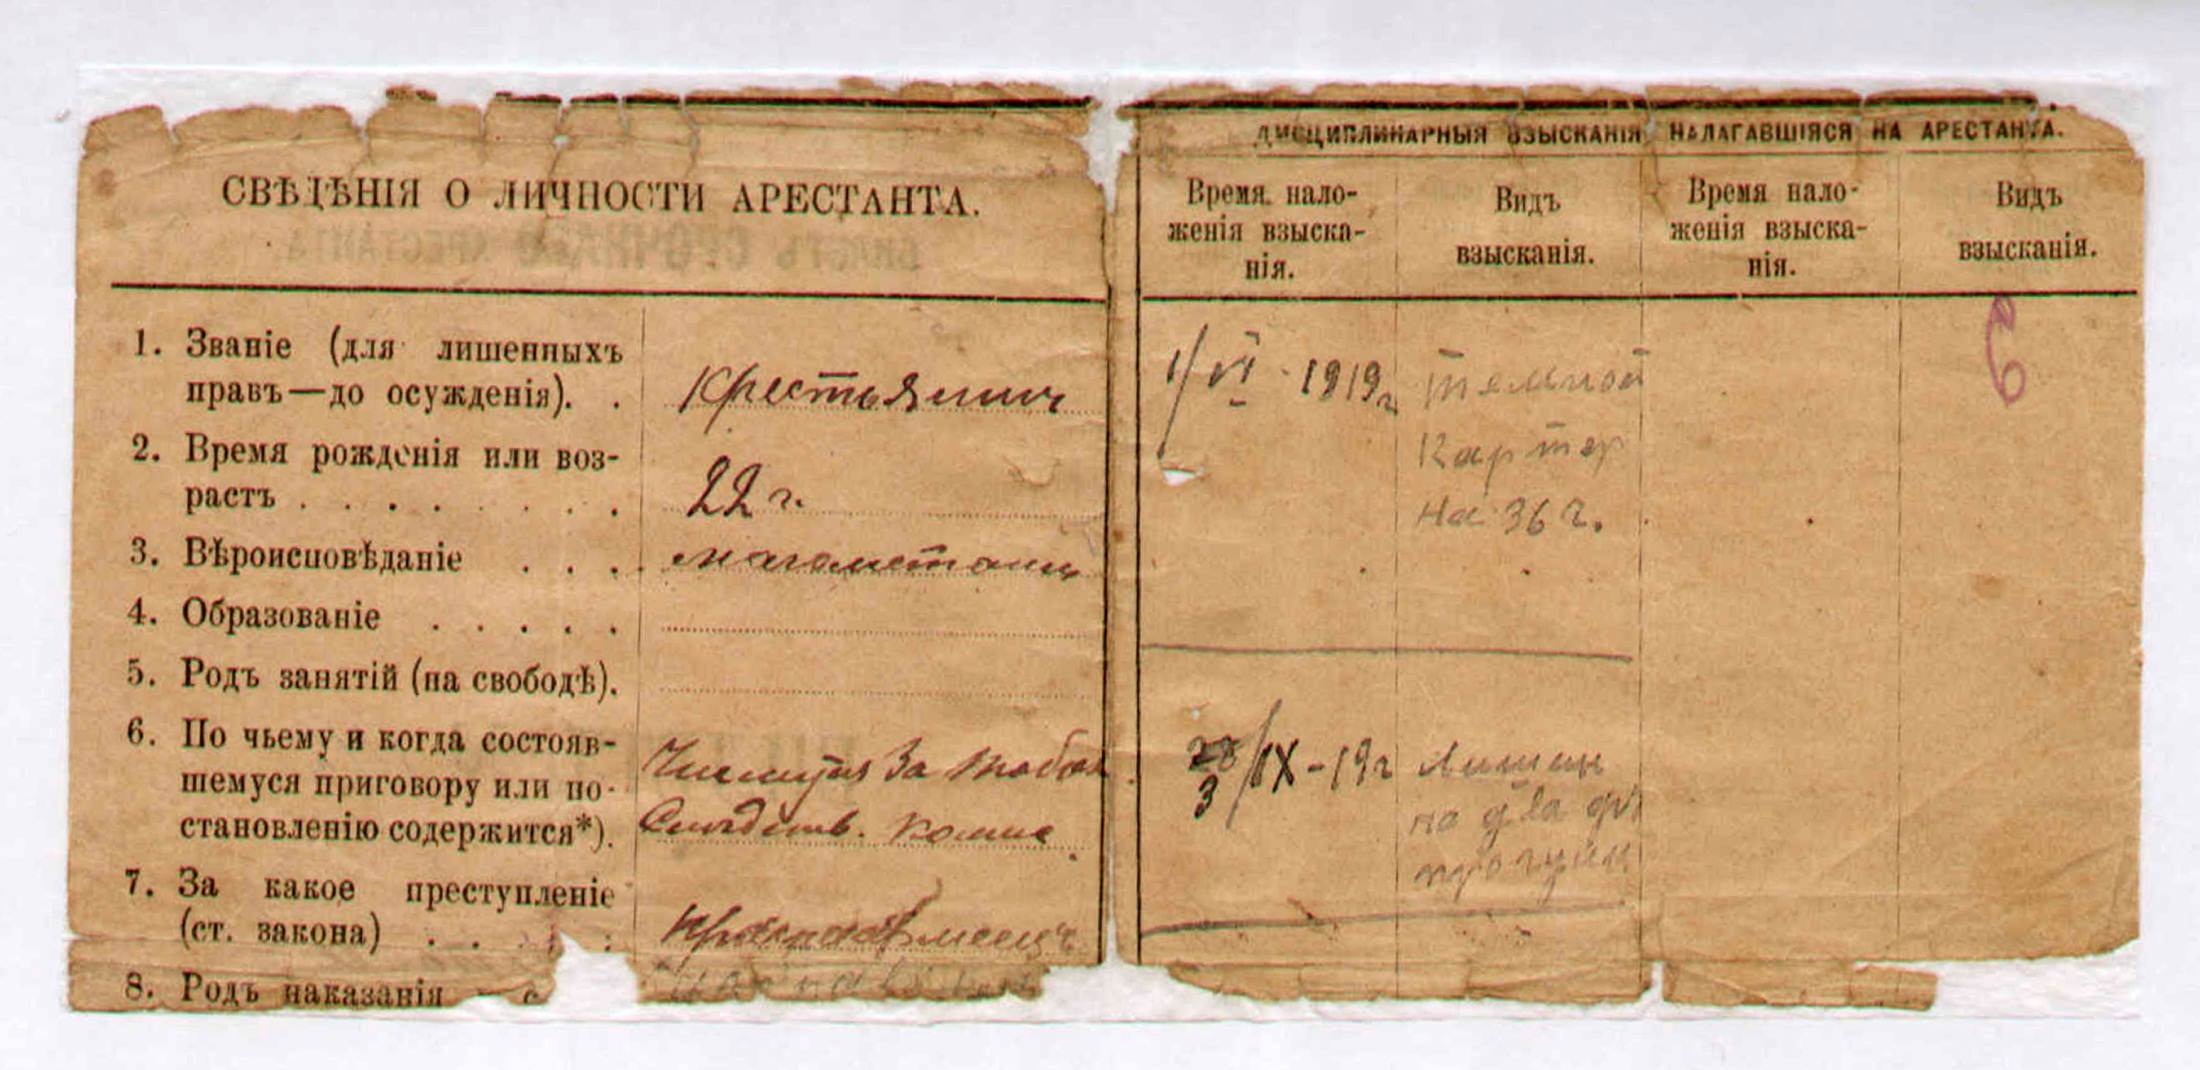 СВѢДѢНІЯ О ЛИЧНОСТИ АРЕСТАНТА.
1. Званіе (для лишенныхъ
правъ—до осужденія). .
Крестьянинъ
2. Время рожденія или воз-
растъ . . . . . . . .
22 г.
3. Вѣроисповѣданіе . . .
магометанин
4. Образованіе . . . . .
5. Родъ занятій (на свободѣ).
6. По чьему и когда состояв-
шемуся приговору или по-
становленію содержится*).
Числится За Тобол
Следств. комис
7. За какое преступленіе
(ст. закона) . . . :
Красноармеецъ
8. Родъ наказанія
ДИСЦИПЛИНАРНЫЯ ВЗЫСКАНІЯ НАЛАГАВШІЯСЯ НА АРЕСТАНТА.
Время нало-
женія взыска-
нія.
Видъ
взысканія.
Время нало-
женія взыска-
нія.
Видъ
взысканія.
1/VI - 1919г
темной
Картер
на 36 г.
28
3/IX-19г
Лишен
на два
6